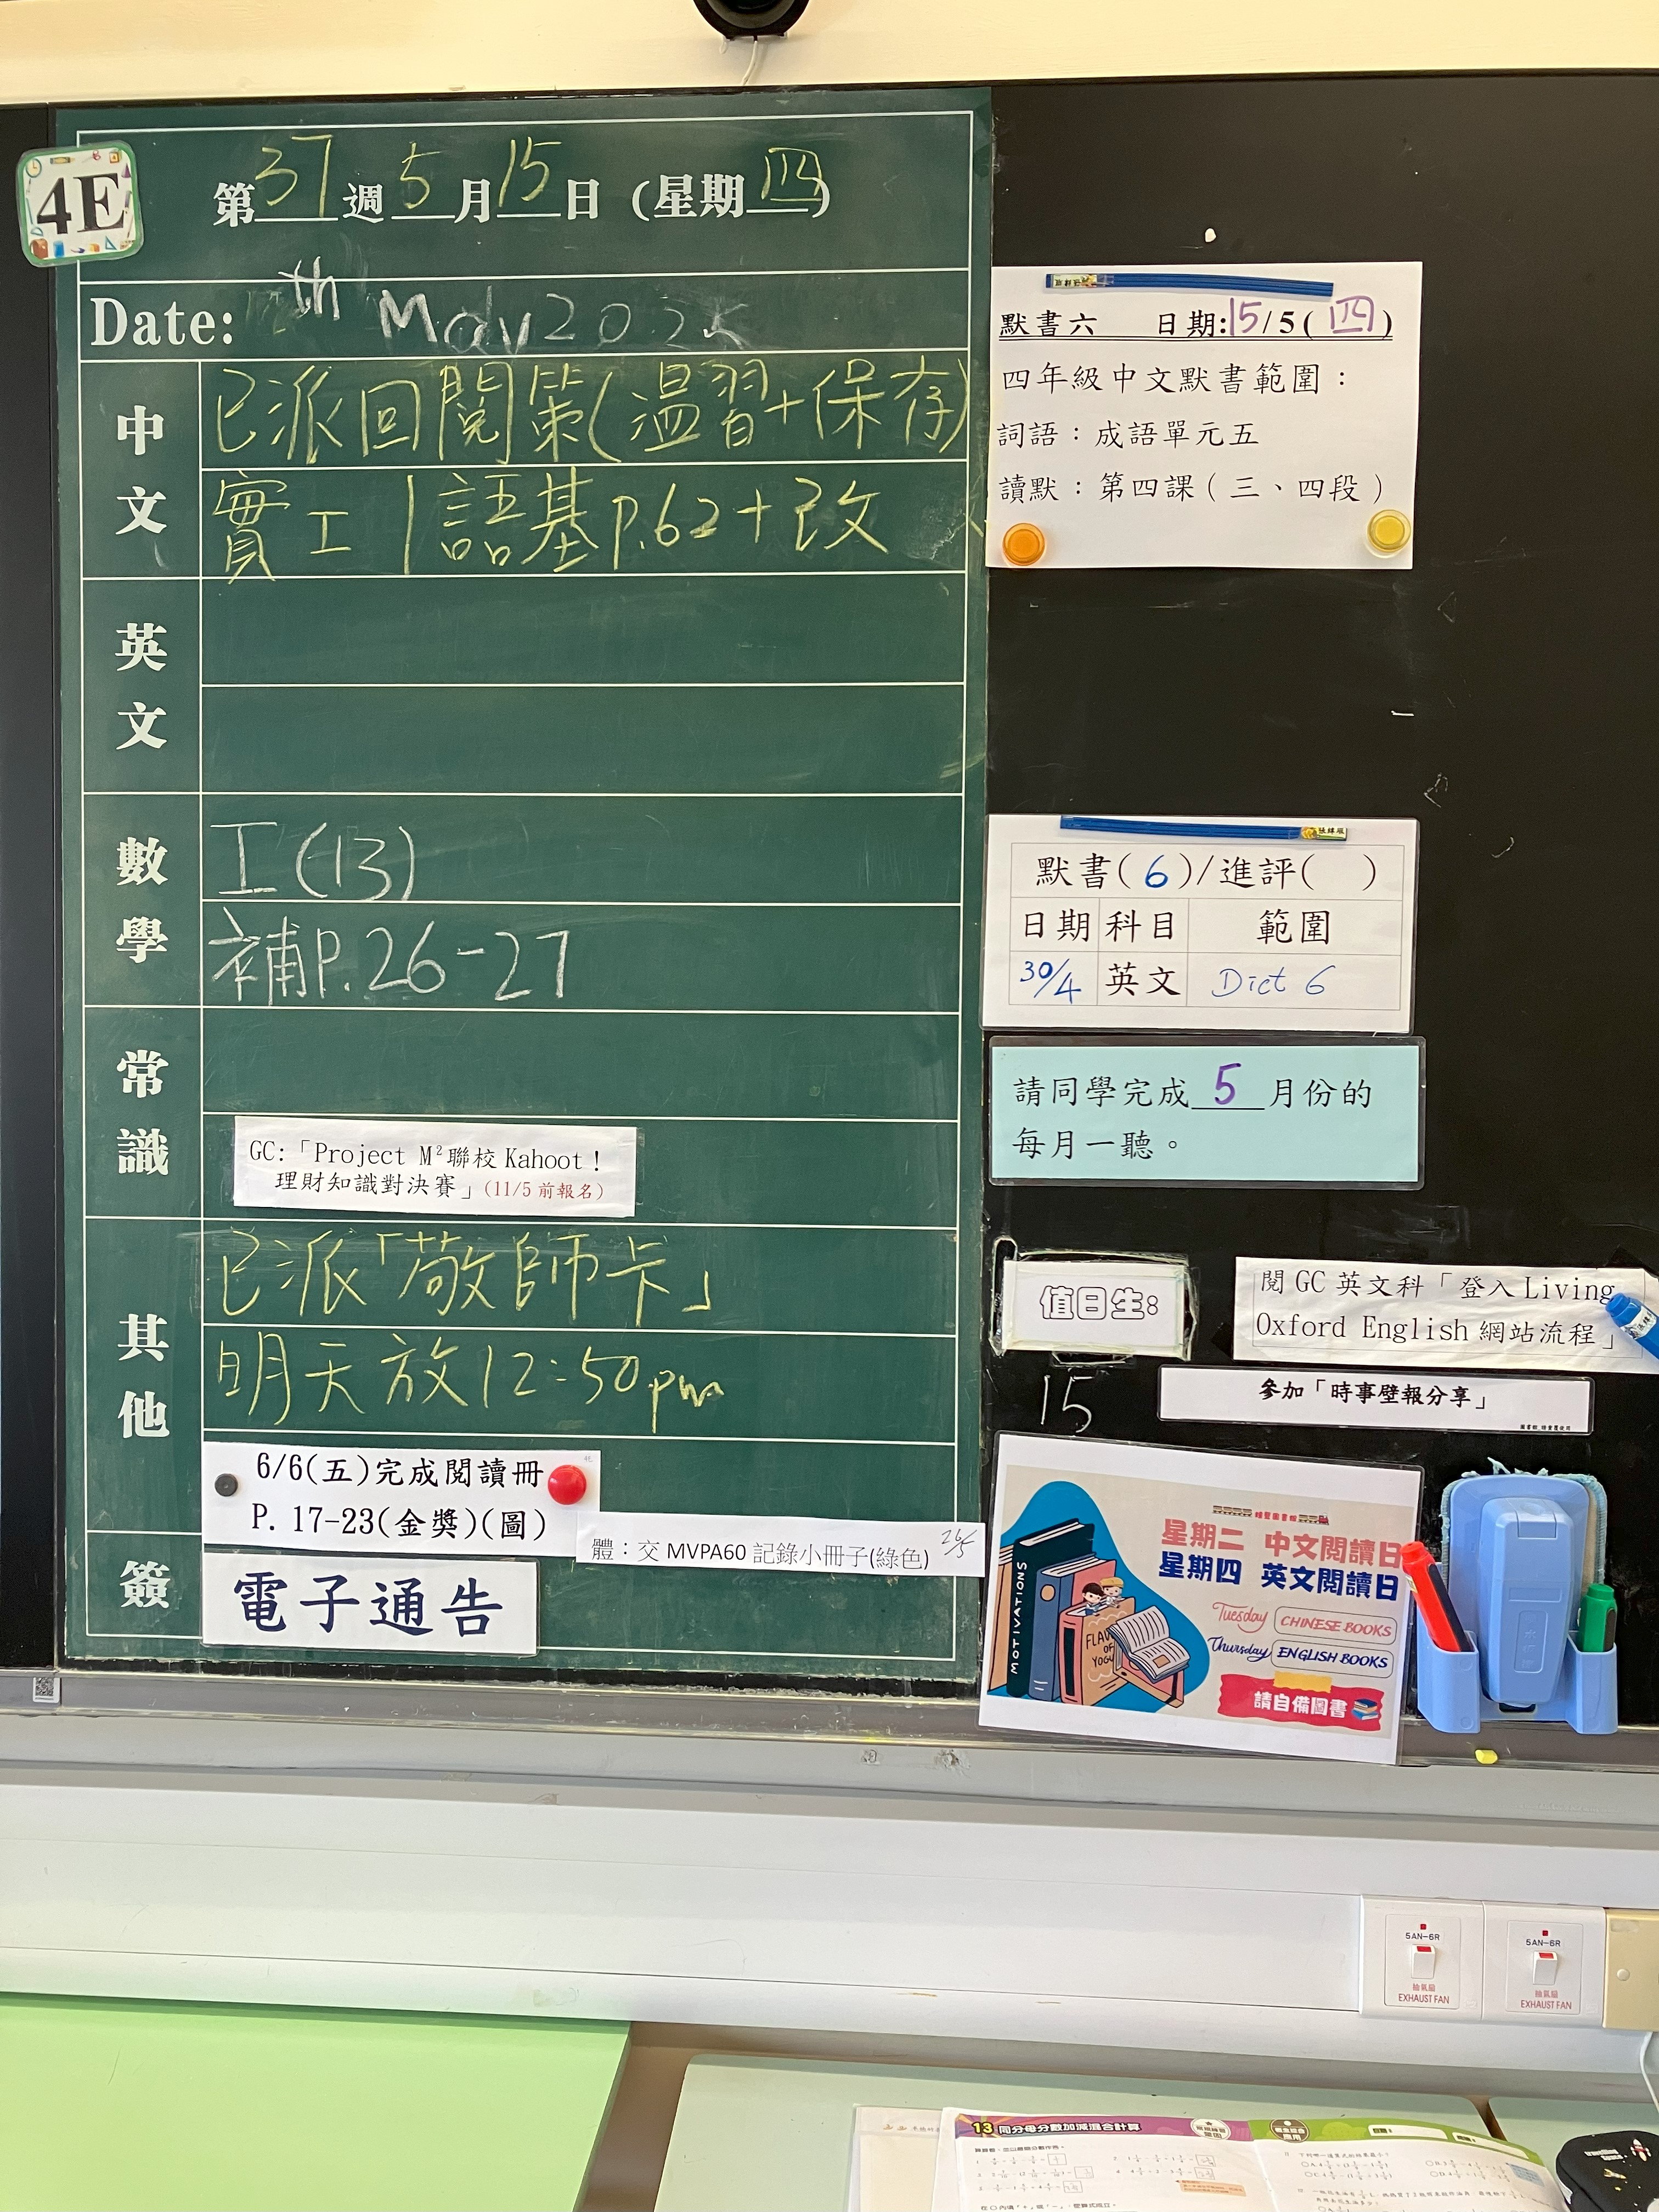 4E
第37週5月15日(星期四)
Date: th May 2025
中文
已派回閱策(溫習+保存)
實工|語基p.62+改
英文
數學
工(13)
補P.26-27
常識
GC:「Project M²聯校Kahoot!
理財知識對決賽」(11/5前報名)
其他
已派「敬師卡」
明天放12:50pm
6/6(五)完成閱讀冊
P. 17-23(金獎)(圖)
體：交MVPA60記錄小冊子(綠色) 26/5
簽
電子通告
默書六 日期:15/5(四)
四年級中文默書範圍：
詞語：成語單元五
讀默：第四課（三、四段）
默書(6)/進評( )
日期 科目 範圍
30/4 英文 Dict 6
請同學完成5月份的
每月一聽。
值日生:
15
閱GC英文科「登入Living
Oxford English網站流程」
參加「時事壁報分享」
星期二 中文閱讀日
星期四 英文閱讀日
Tuesday CHINESE BOOKS
Thursday ENGLISH BOOKS
請自備圖書
MOTIVATIONS
5AN-6R
抽氣扇
EXHAUST FAN
5AN-6R
抽氣扇
EXHAUST FAN
13 同分母分數加減混合計算